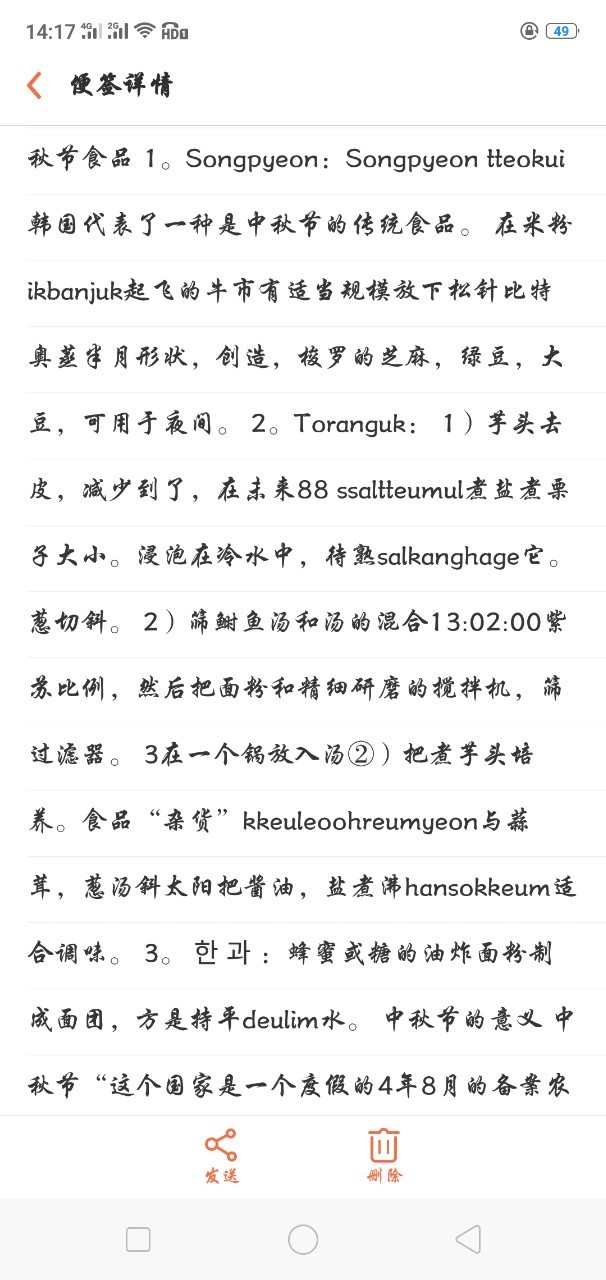 14:17 4G 2G HD1 49
便签详情
秋节食品 1。Songpyeon：Songpyeon tteokui
韩国代表了一种是中秋节的传统食品。 在米粉
ikbanjuk起飞的牛市有适当规模放下松针比特
奥蒸半月形状，创造，梭罗的芝麻，绿豆，大
豆，可用于夜间。 2。Toranguk： 1）芋头去
皮，减少到了，在未来88 ssaltteumul煮盐煮栗
子大小。浸泡在冷水中，待熟salkanghage它。
葱切斜。 2）筛鲥鱼汤和汤的混合13:02:00紫
苏比例，然后把面粉和精细研磨的搅拌机，筛
过滤器。 3在一个锅放入汤②）把煮芋头培
养。食品“杂货”kkeuleoohreumyeon与蒜
茸，葱汤斜太阳把酱油，盐煮沸hansokkeum适
合调味。 3。 한과：蜂蜜或糖的油炸面粉制
成面团，方是持平deulim水。 中秋节的意义 中
秋节“这个国家是一个度假的4年8月的备案农
发送 删除